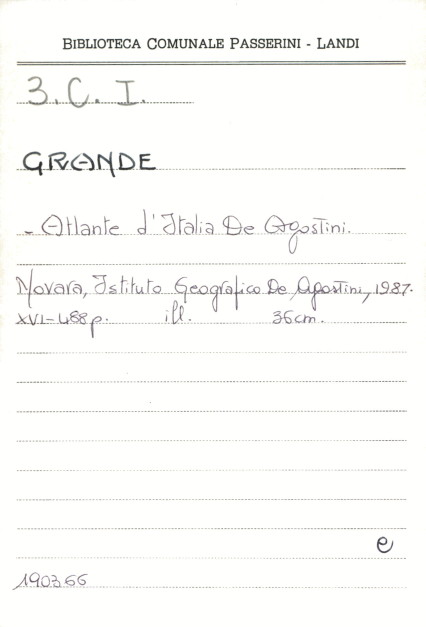 BIBLIOTECA COMUNALE PASSERINI - LANDI
3. C. I.
GRANDE
- Atlante d'Italia De Agostini.
Novara, Istituto Geografico De Agostini, 1987.
XVI-488p. ill. 36cm.
e
190366